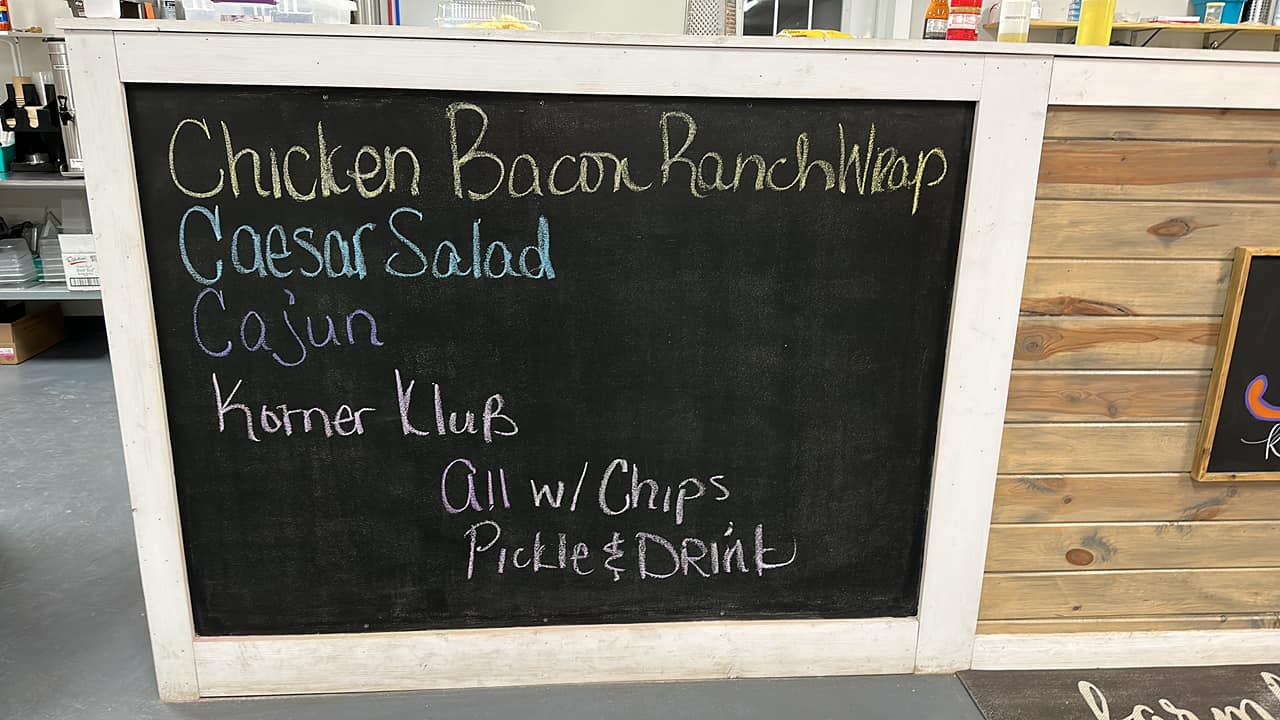 Chicken Bacon Ranch Wrap
Caesar Salad
Cajun
Korner Klub
All w/ Chips
Pickle & Drink